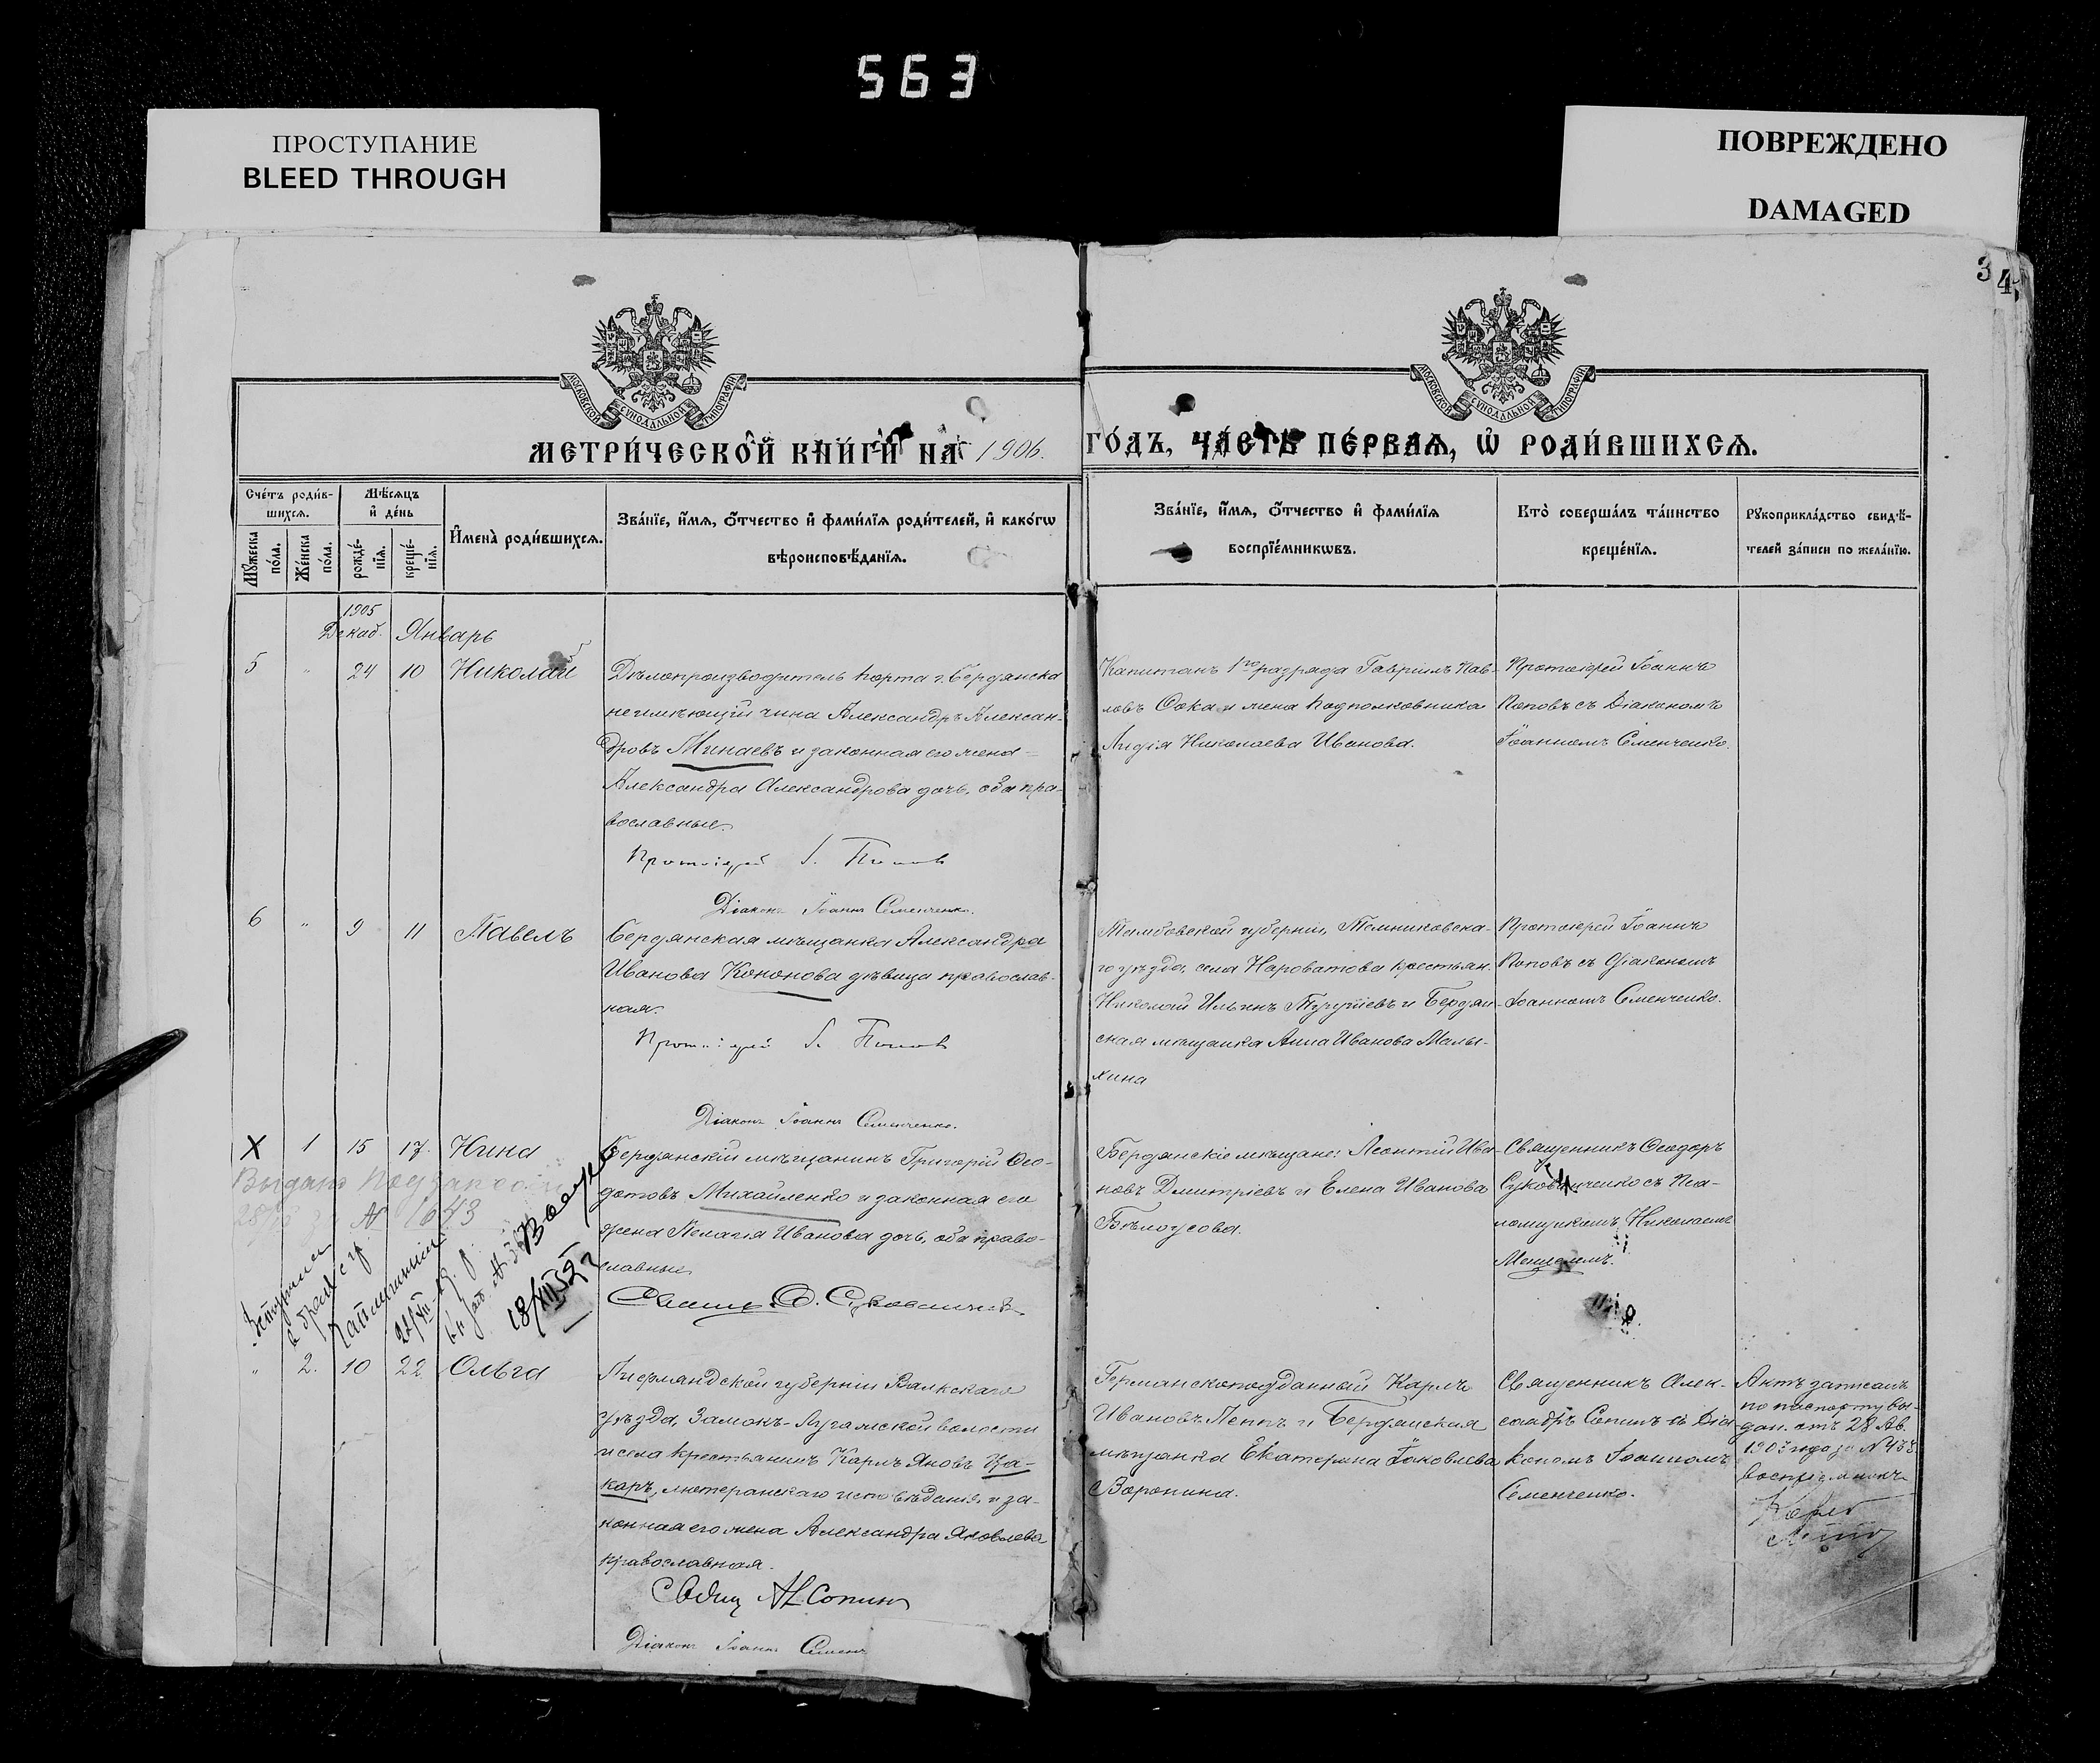 563
ПРОСТУПАНИЕ
BLEED THROUGH
ПОВРЕЖДЕНО
DAMAGED
34
МОСКОВСКОЙ СѴНОДАЛЬНОЙ ТИПОГРАФІИ
МОСКОВСКОЙ СѴНОДАЛЬНОЙ ТИПОГРАФІИ
МЕТРИ́ЧЕСКОЙ КНИ́ГИ НА 1906. ГО́ДЪ, ЧА́СТЬ ПЕ́РВАѦ, Ѡ РОДИ́ВШИХСѦ.
Сче́тъ роди́в-
шихсѧ.
Мꙋ́жеска по́ла.
Же́нска по́ла.
Мѣ́сѧцъ
и де́нь
рожде́-
нїѧ.
креще́-
нїѧ.
Имена̀ роди́вшихсѧ.
Зва́нїе, и́мѧ, о́тчество и фами́лїѧ роди́телей, и како́гѡ
вѣроисповѣ́данїѧ.
Зва́нїе, и́мѧ, о́тчество и фами́лїѧ
воспрїе́мникѡвъ.
Кто̀ соверша́лъ та́инство
креще́нїѧ.
Рꙋкоприкла́дство свидѣ́-
телей за́писи по жела́нїю.
1905
Декаб. Январь
5 " 24 10 Николай
Дѣлопроизводитель порта г. Бердянска
неимѣющій чина Александръ Алексан-
дровъ Минаевъ и законная его жена
Александра Александрова дочь, оба пра-
вославные.
Протоіерей І. Попов
Діаконъ Іоаннъ Семенченко.
Капитанъ 1го разряда Гавріилъ Пав-
ловъ Сока и жена подполковника
Лидія Николаева Иванова.
Протоіерей Іоаннъ
Поповъ съ Діакономъ
Іоанномъ Семенченко.
6 " 9 11 Павелъ
Бердянская мѣщанка Александра
Иванова Кононова дѣвица православ-
ная.
Протоіерей І. Попов
Діаконъ Іоаннъ Семенченко.
Тамбовской губерніи, Темниковска-
го уѣзда, села Нароватова крестьян.
Николай Ильинъ и Бердян-
ская мѣщанка Анна Иванова Малы-
хина
Протоіерей Іоаннъ
Поповъ съ Діакономъ
Іоанномъ Семенченко.
X 1 15 17. Нина
Бердянскій мѣщанинъ Григорій Ѳео-
дотовъ Михайленко и законная его
жена Пелагія Иванова дочь, оба право-
славные
Бердянскіе мѣщане: Леонтій Ива-
новъ Дмитріевъ и Елена Иванова
Бѣлоусова.
Священникъ Ѳеодоръ
съ Пса-
ломщикомъ Николаемъ
№ 1643
18/XII 52
" 2. 10 22. Ольга
Лифляндской губерніи Валкскаго
уѣзда, Замокъ- волости
и села крестьянинъ Карлъ Яновъ Ца-
каръ, лютеранскаго исповѣданія и за-
конная его жена Александра Яковлева
православная.
Свящ Ал Сопин
Діаконъ Іоаннъ Семен
Германскоподданный Карлъ
Ивановъ и Бердянская
мѣщанка Екатерина Іаковлева
Воронина.
Священникъ Алек-
сандръ Сопинъ съ Діа-
кономъ Іоанномъ
Семенченко.
Актъ записанъ
по паспорту вы-
дан. отъ 28 Ав.
воспріемникъ
Карлъ